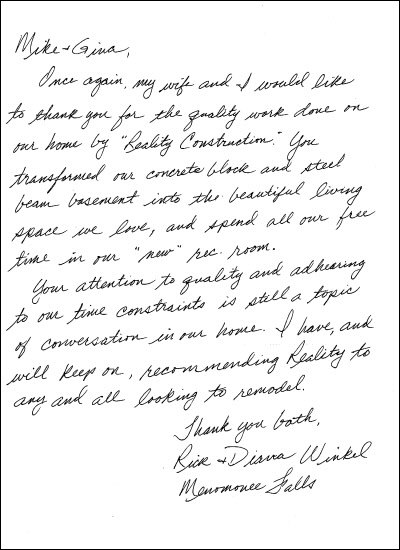 Mike + Gina,
Once again, my wife and I would like
to thank you for the quality work done on
our home by "Reality Construction." You
transformed our concrete block and steel
beam basement into the beautiful living
space we love, and spend all our free
time in our "new" rec. room.
Your attention to quality and adhering
to our time constraints is still a topic
of conversation in our home. I have, and
will keep on, recommending Reality to
any and all looking to remodel.
Thank you both,
Rick + Diana Winkel
Menomonee Falls